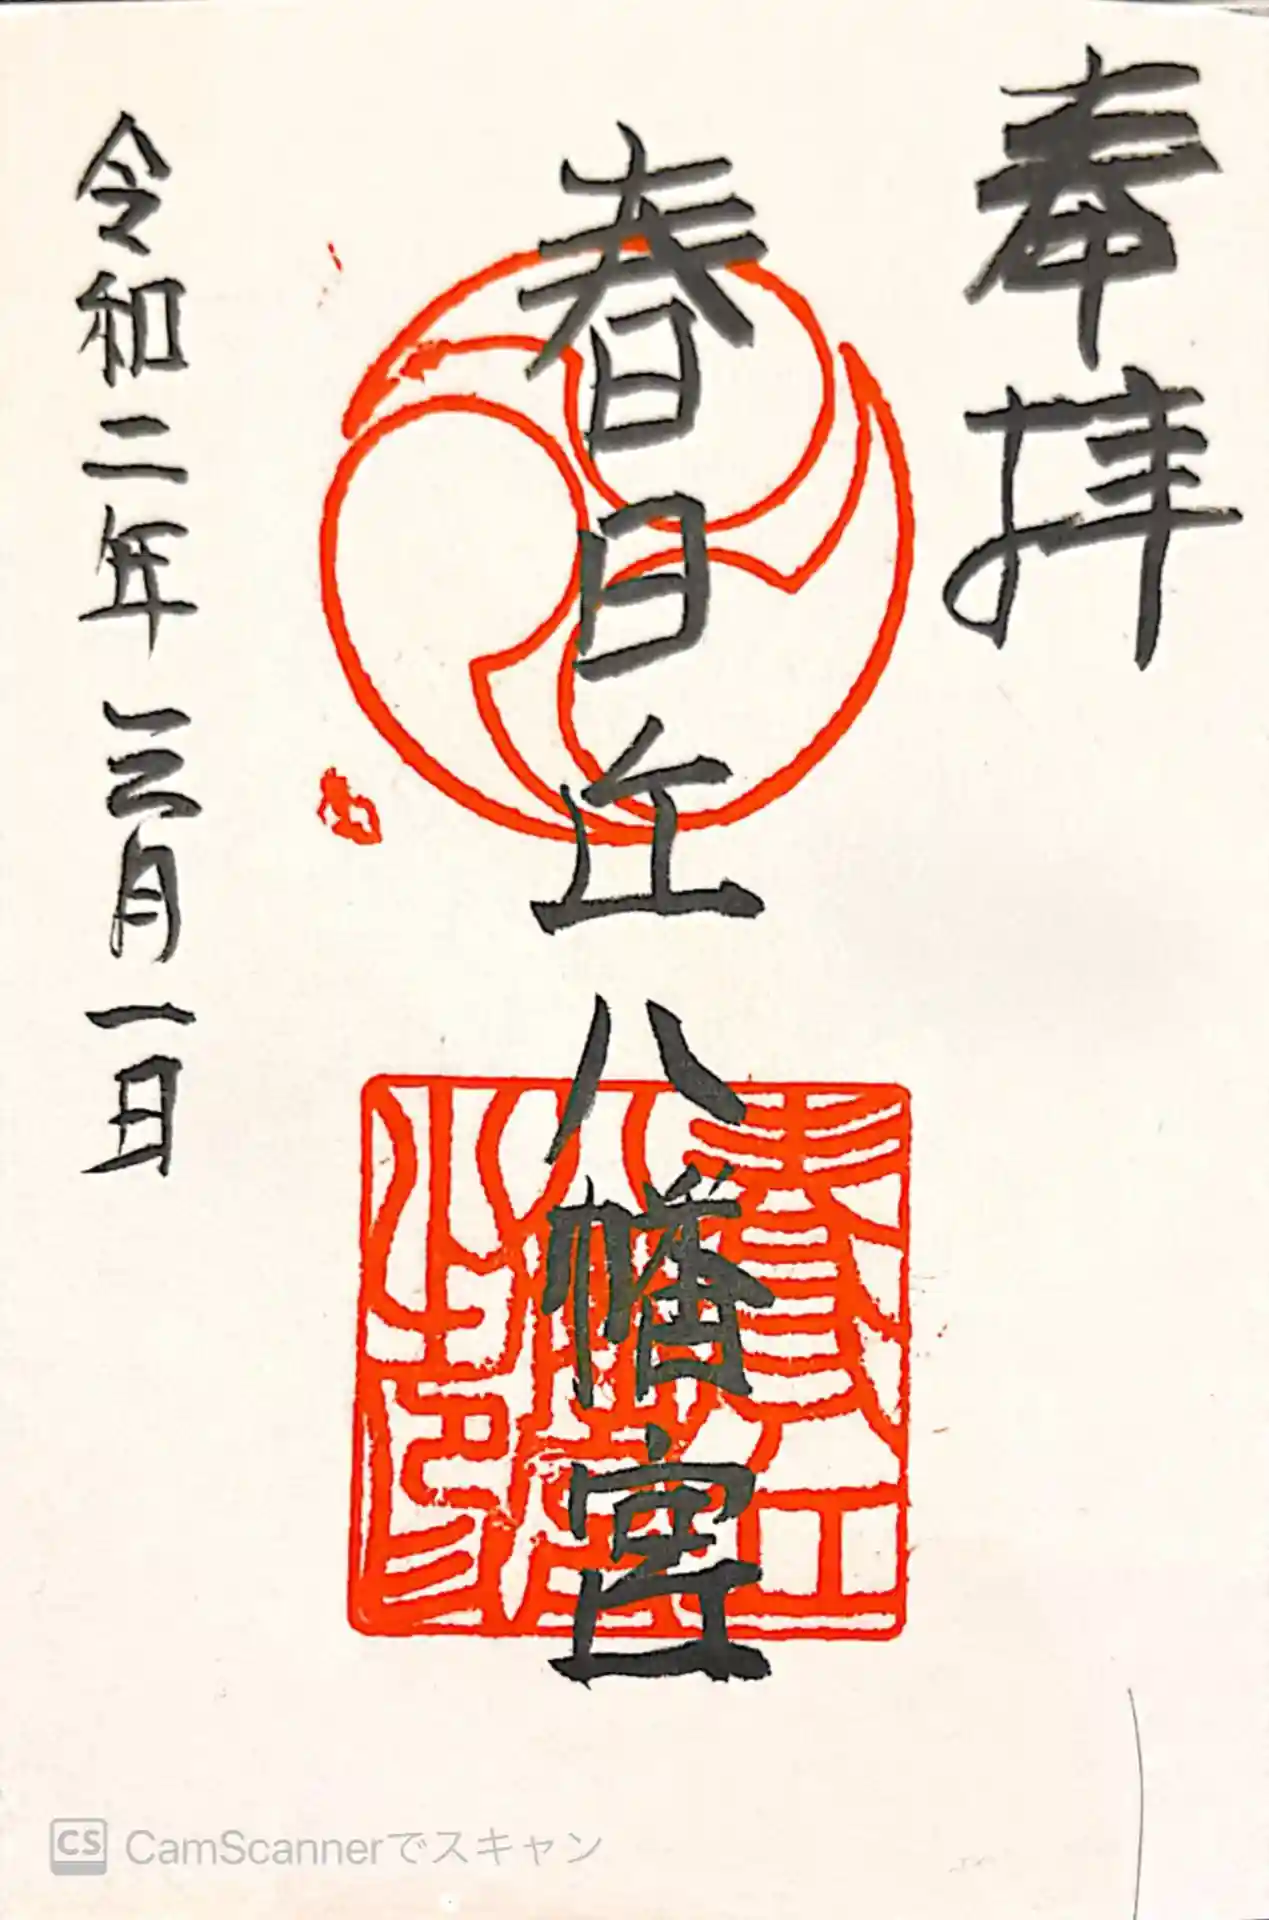 奉拝
春日丘八幡宮
令和二年三月一日
CS CamScannerでスキャン